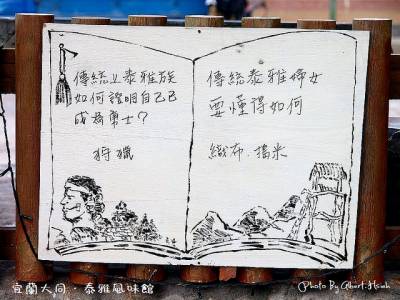 傳統上泰雅族
如何證明自己已
成為勇士?
狩獵
傳統泰雅婦女
要懂得如何
織布、搗米
宜蘭大同·泰雅風味館
Photo By Albert Hsieh